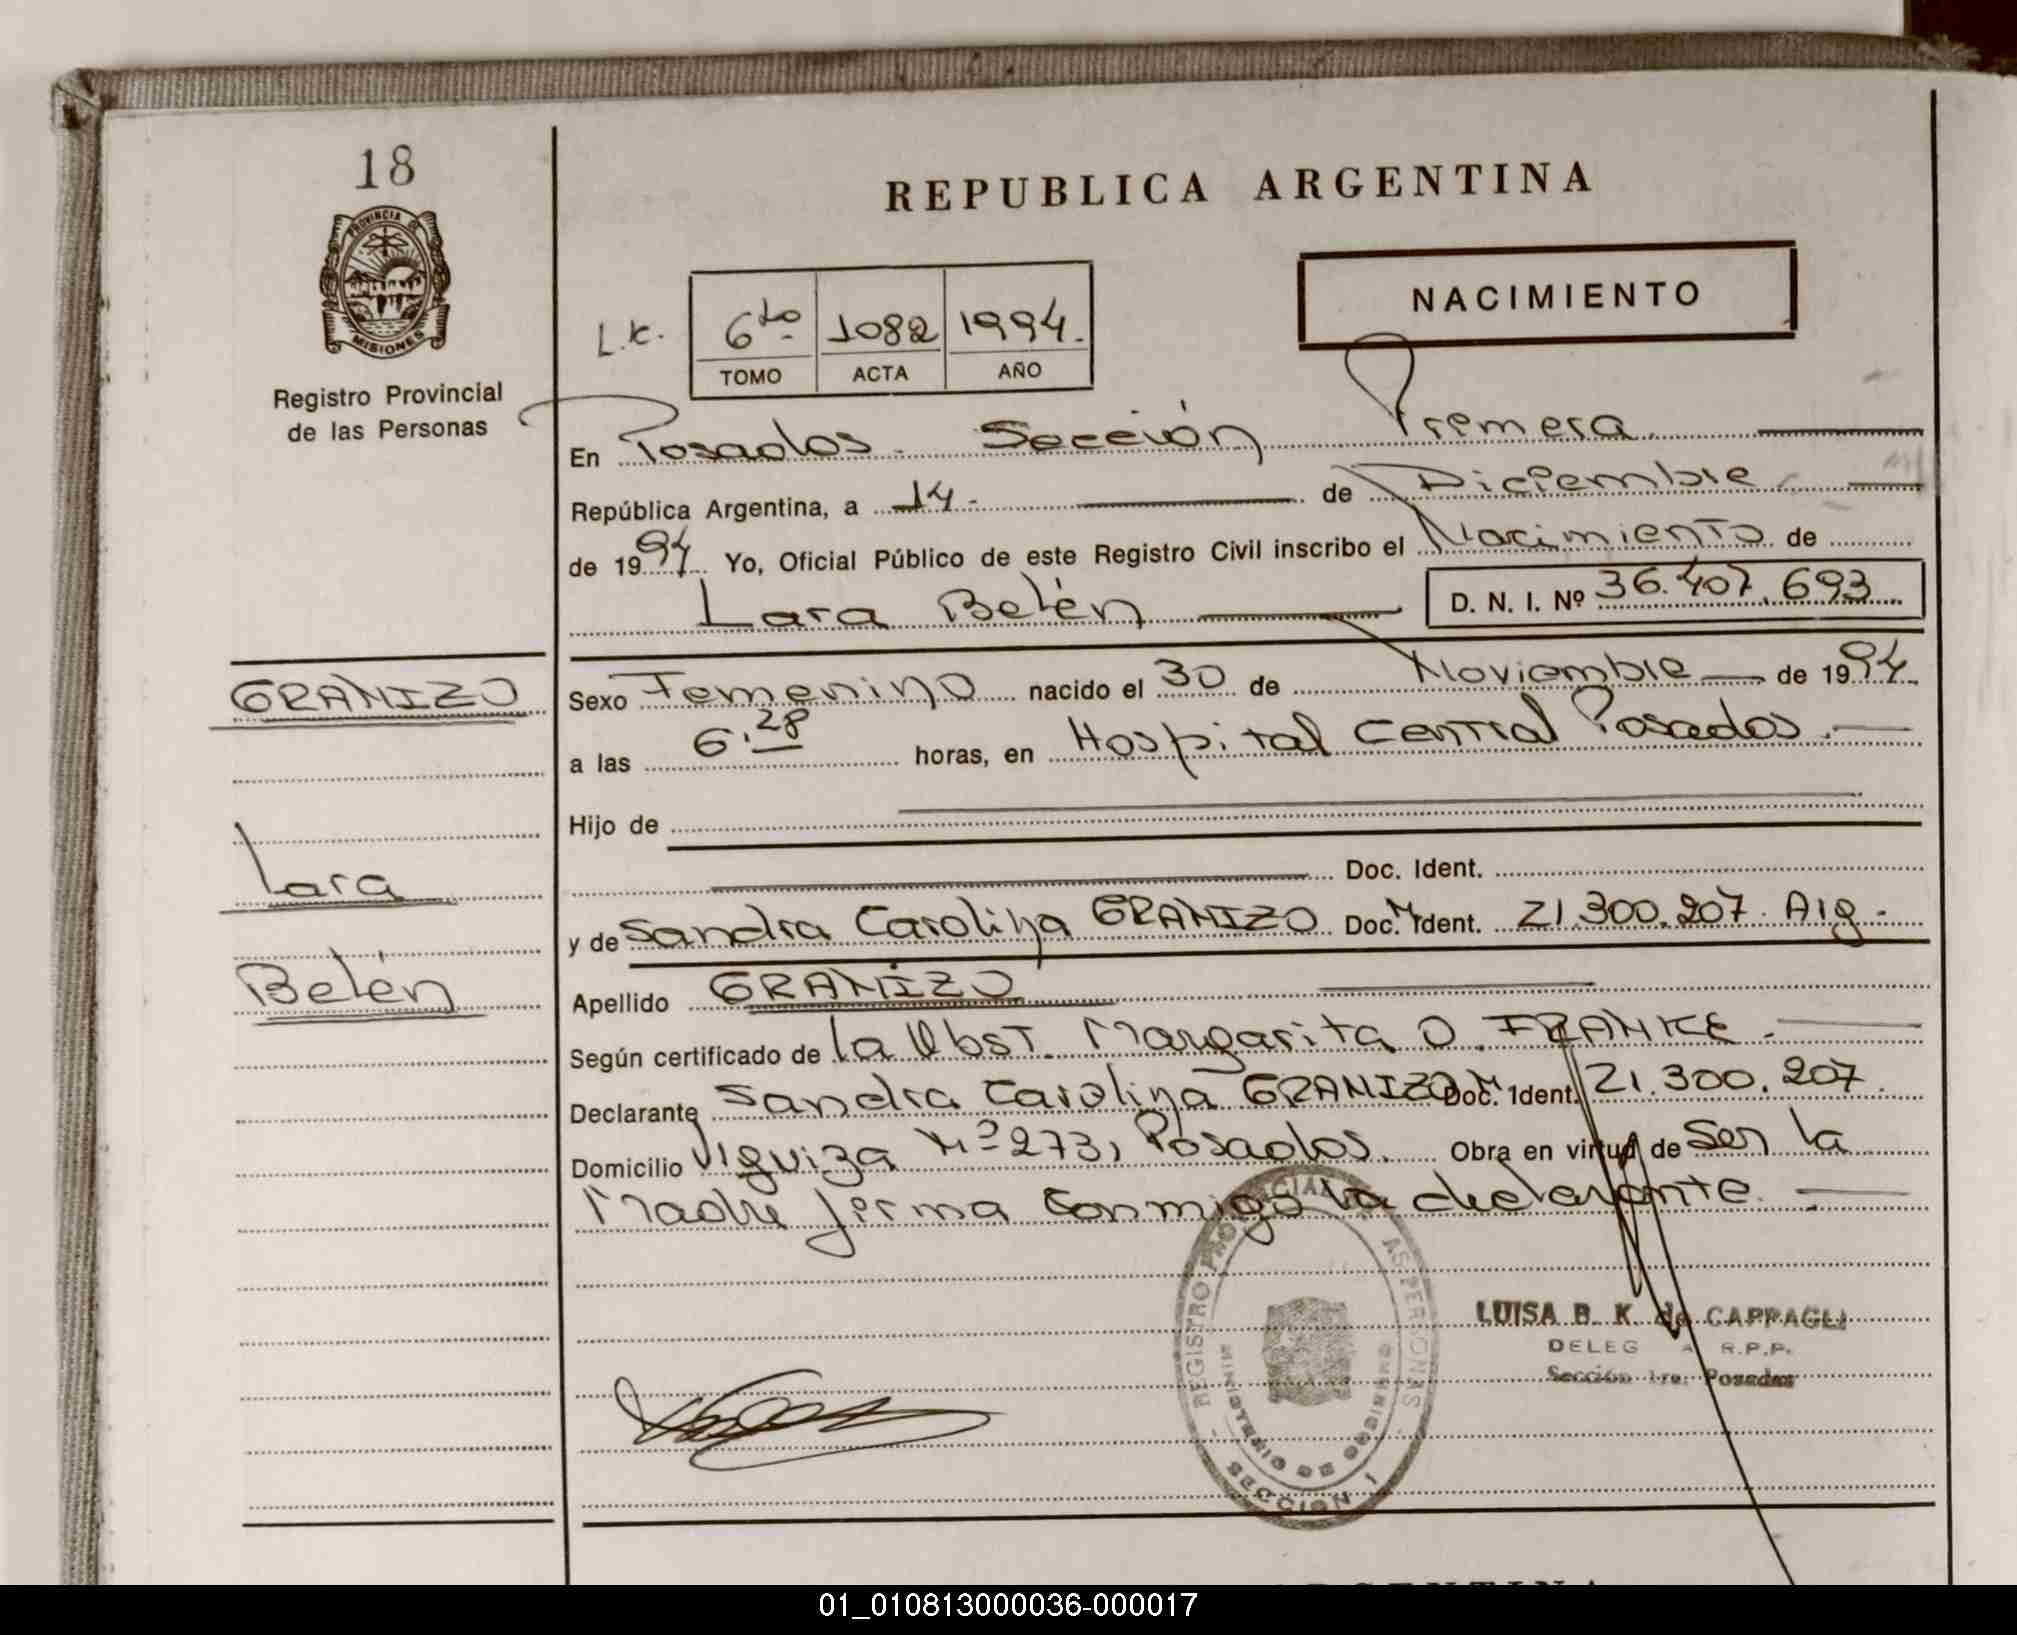 18
PROVINCIA DE
MISIONES
Registro Provincial
de las Personas
REPUBLICA ARGENTINA
NACIMIENTO
L.K.
6to. 1082 1994.
TOMO ACTA AÑO
En Posadas. Sección Primera.
República Argentina, a 14- de Diciembre
de 1994 Yo, Oficial Público de este Registro Civil inscribo el Nacimiento de
Lara Belén D. N. I. Nº 36.407.693
GRANIZO
Lara
Belén
Sexo Femenino nacido el 30 de Noviembre de 1994
a las 6.28 horas, en Hospital Central Posadas.
Hijo de
Doc. Ident.
y de Sandra Carolina GRANIZO Doc. Ident. 21.300.207. Arg.
Apellido GRANIZO
Según certificado de la Obst. Margarita O. FRANKE.
Declarante Sandra Carolina GRANIZO Doc. Ident. 21.300.207.
Domicilio Viguiza Nº 273, Posadas. Obra en virtud de Ser la
Madre firma conmigo la declarante.
REGISTRO PROVINCIAL DE LAS PERSONAS
MINISTERIO DE GOBIERNO
SECCION 1
LUISA B. K. de CAPPAGLI
DELEG A R.P.P.
Sección 1ra. Posadas
ARGENTINA
01_010813000036-000017